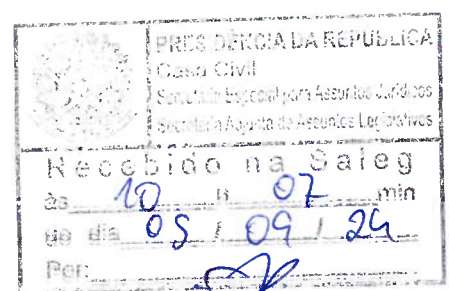 PRESIDÊNCIA DA REPÚBLICA
Casa Civil
Secretaria Especial para Assuntos Jurídicos
Secretaria Adjunta de Assuntos Legislativos
Recebido na Saleg
às 10 H 07 min
do dia 05 / 09 / 24
Por: